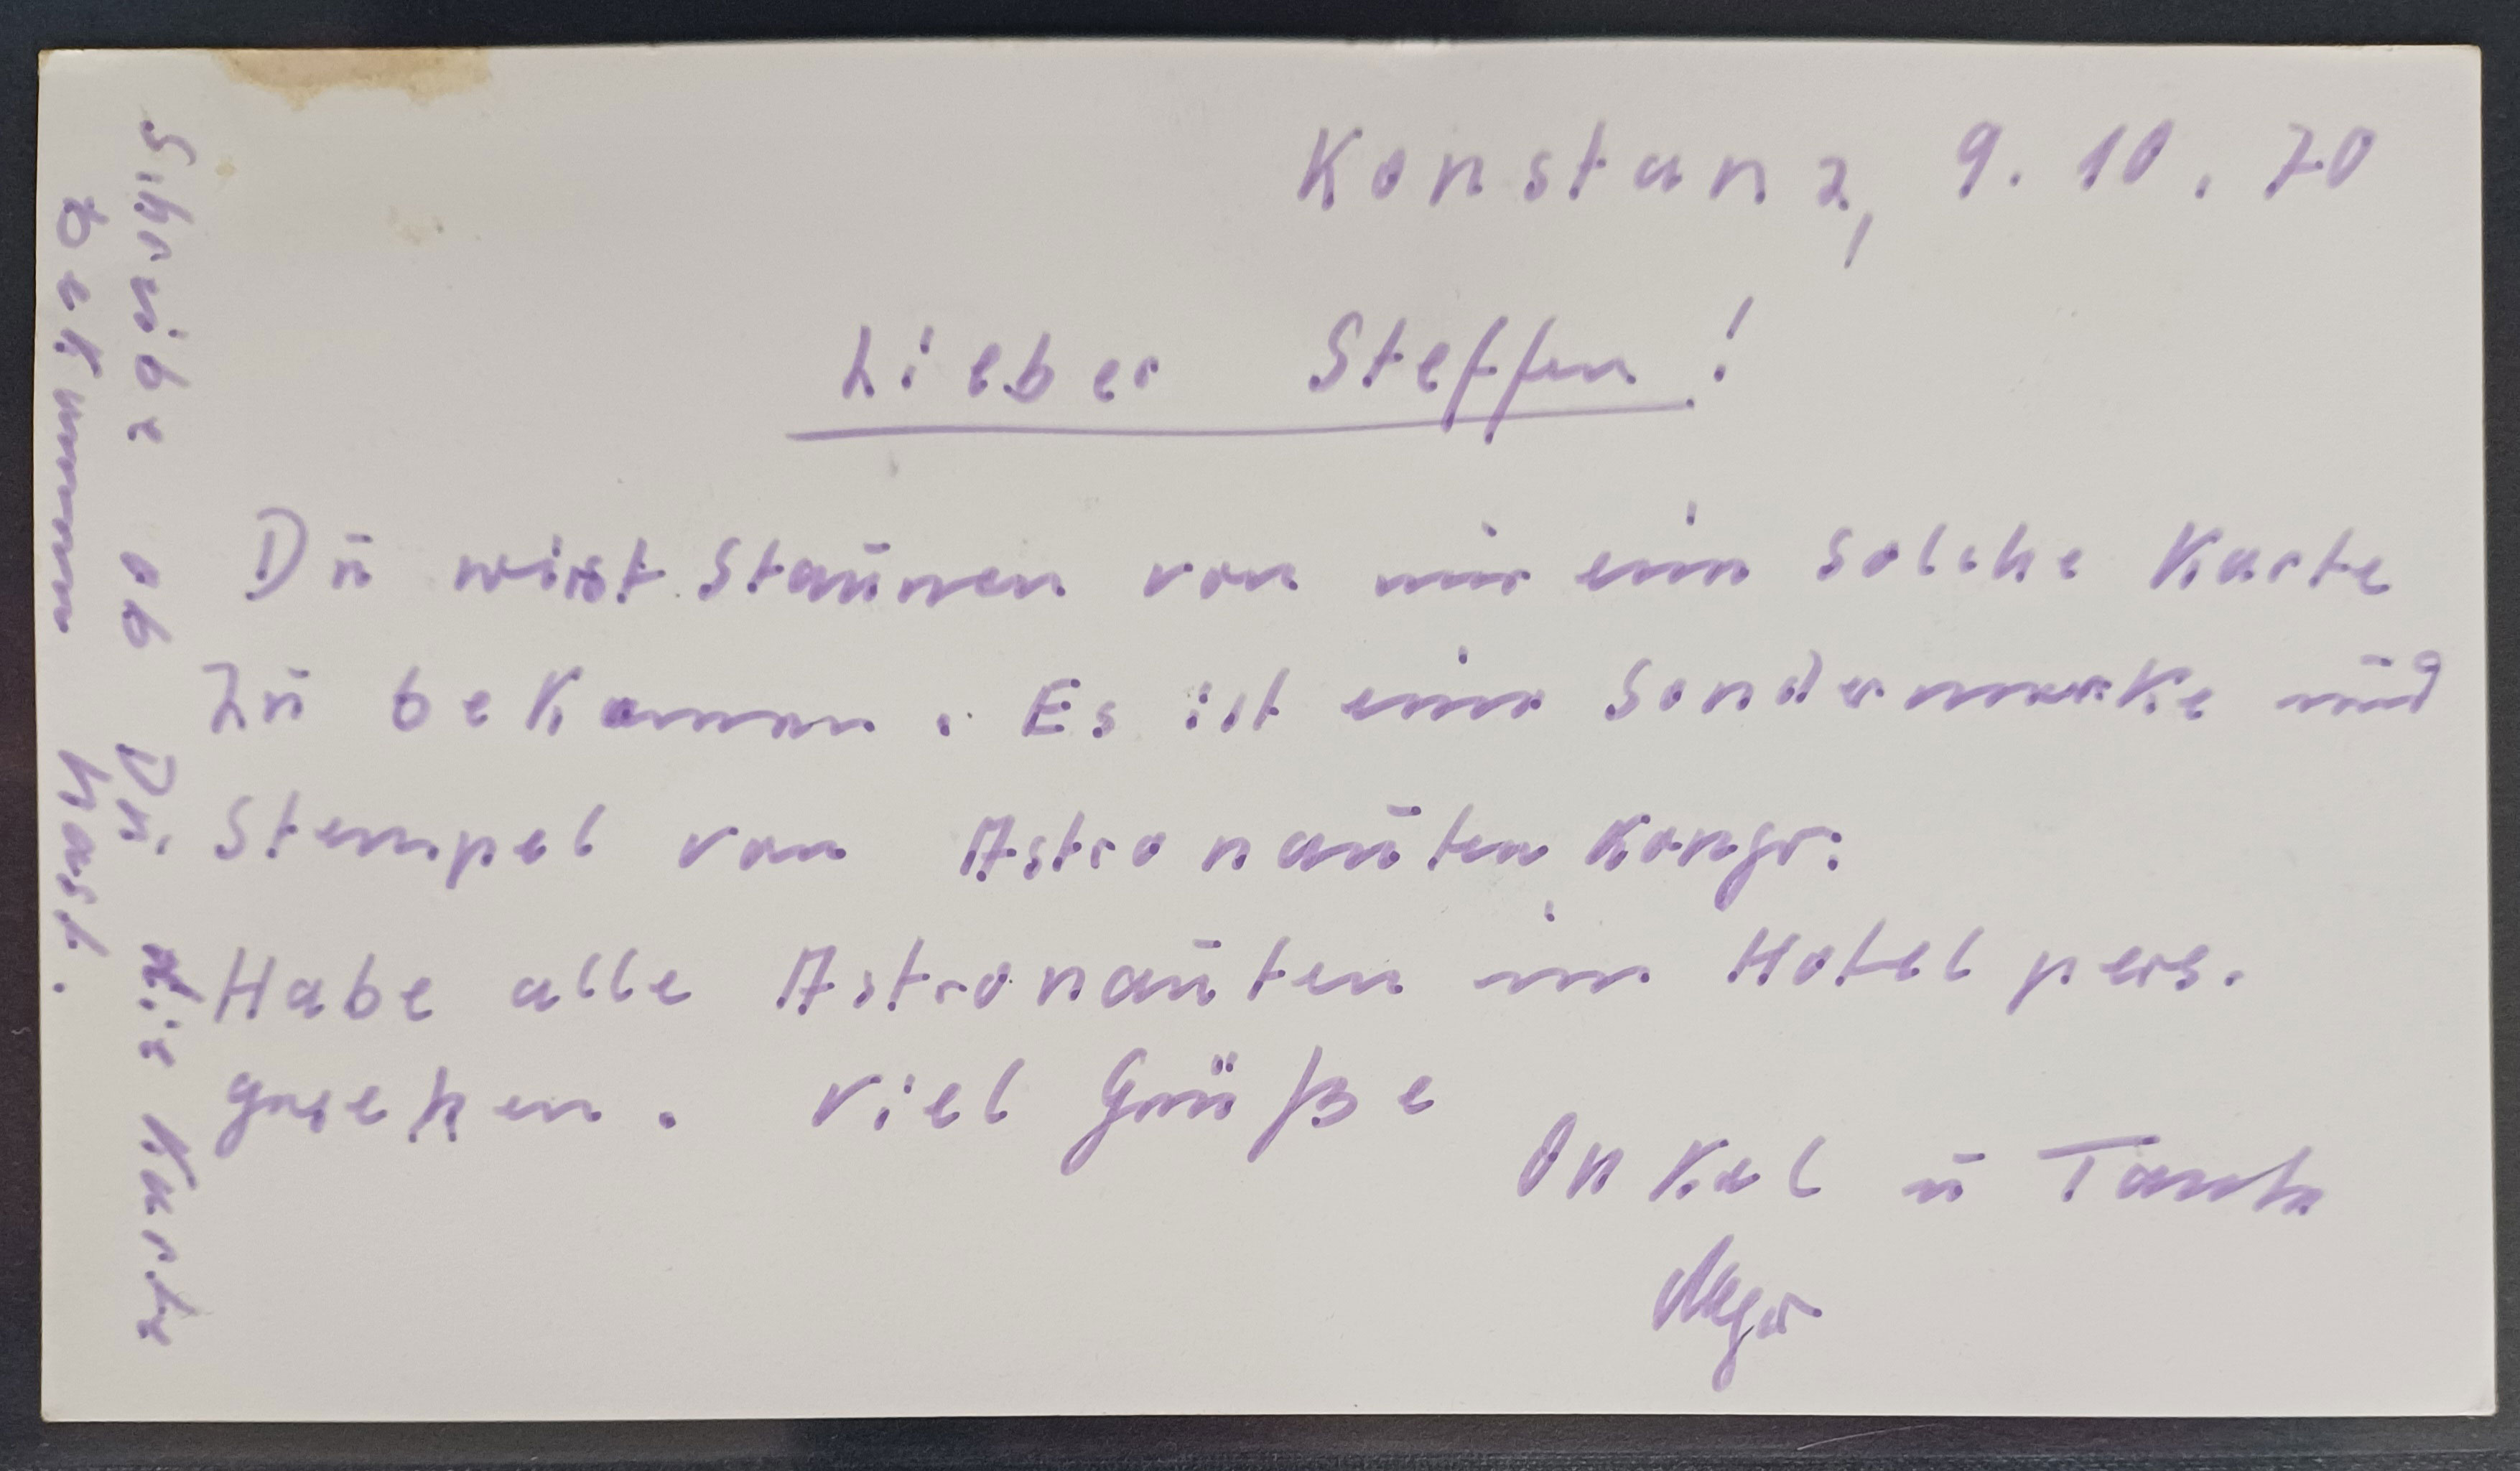 Konstanz, 9.10.70
Lieber Steffen!
Du wirst Staunen von mir eine solche Karte
Zu bekommen. Es ist eine Sondermarke und
Stempel von Astronauten Kongr.
Habe alle Astronauten im Hotel pers.
gesehen. Viel Grüße
Onkel u Tante
Schreibe ob Du die Karte
bekommen hast.